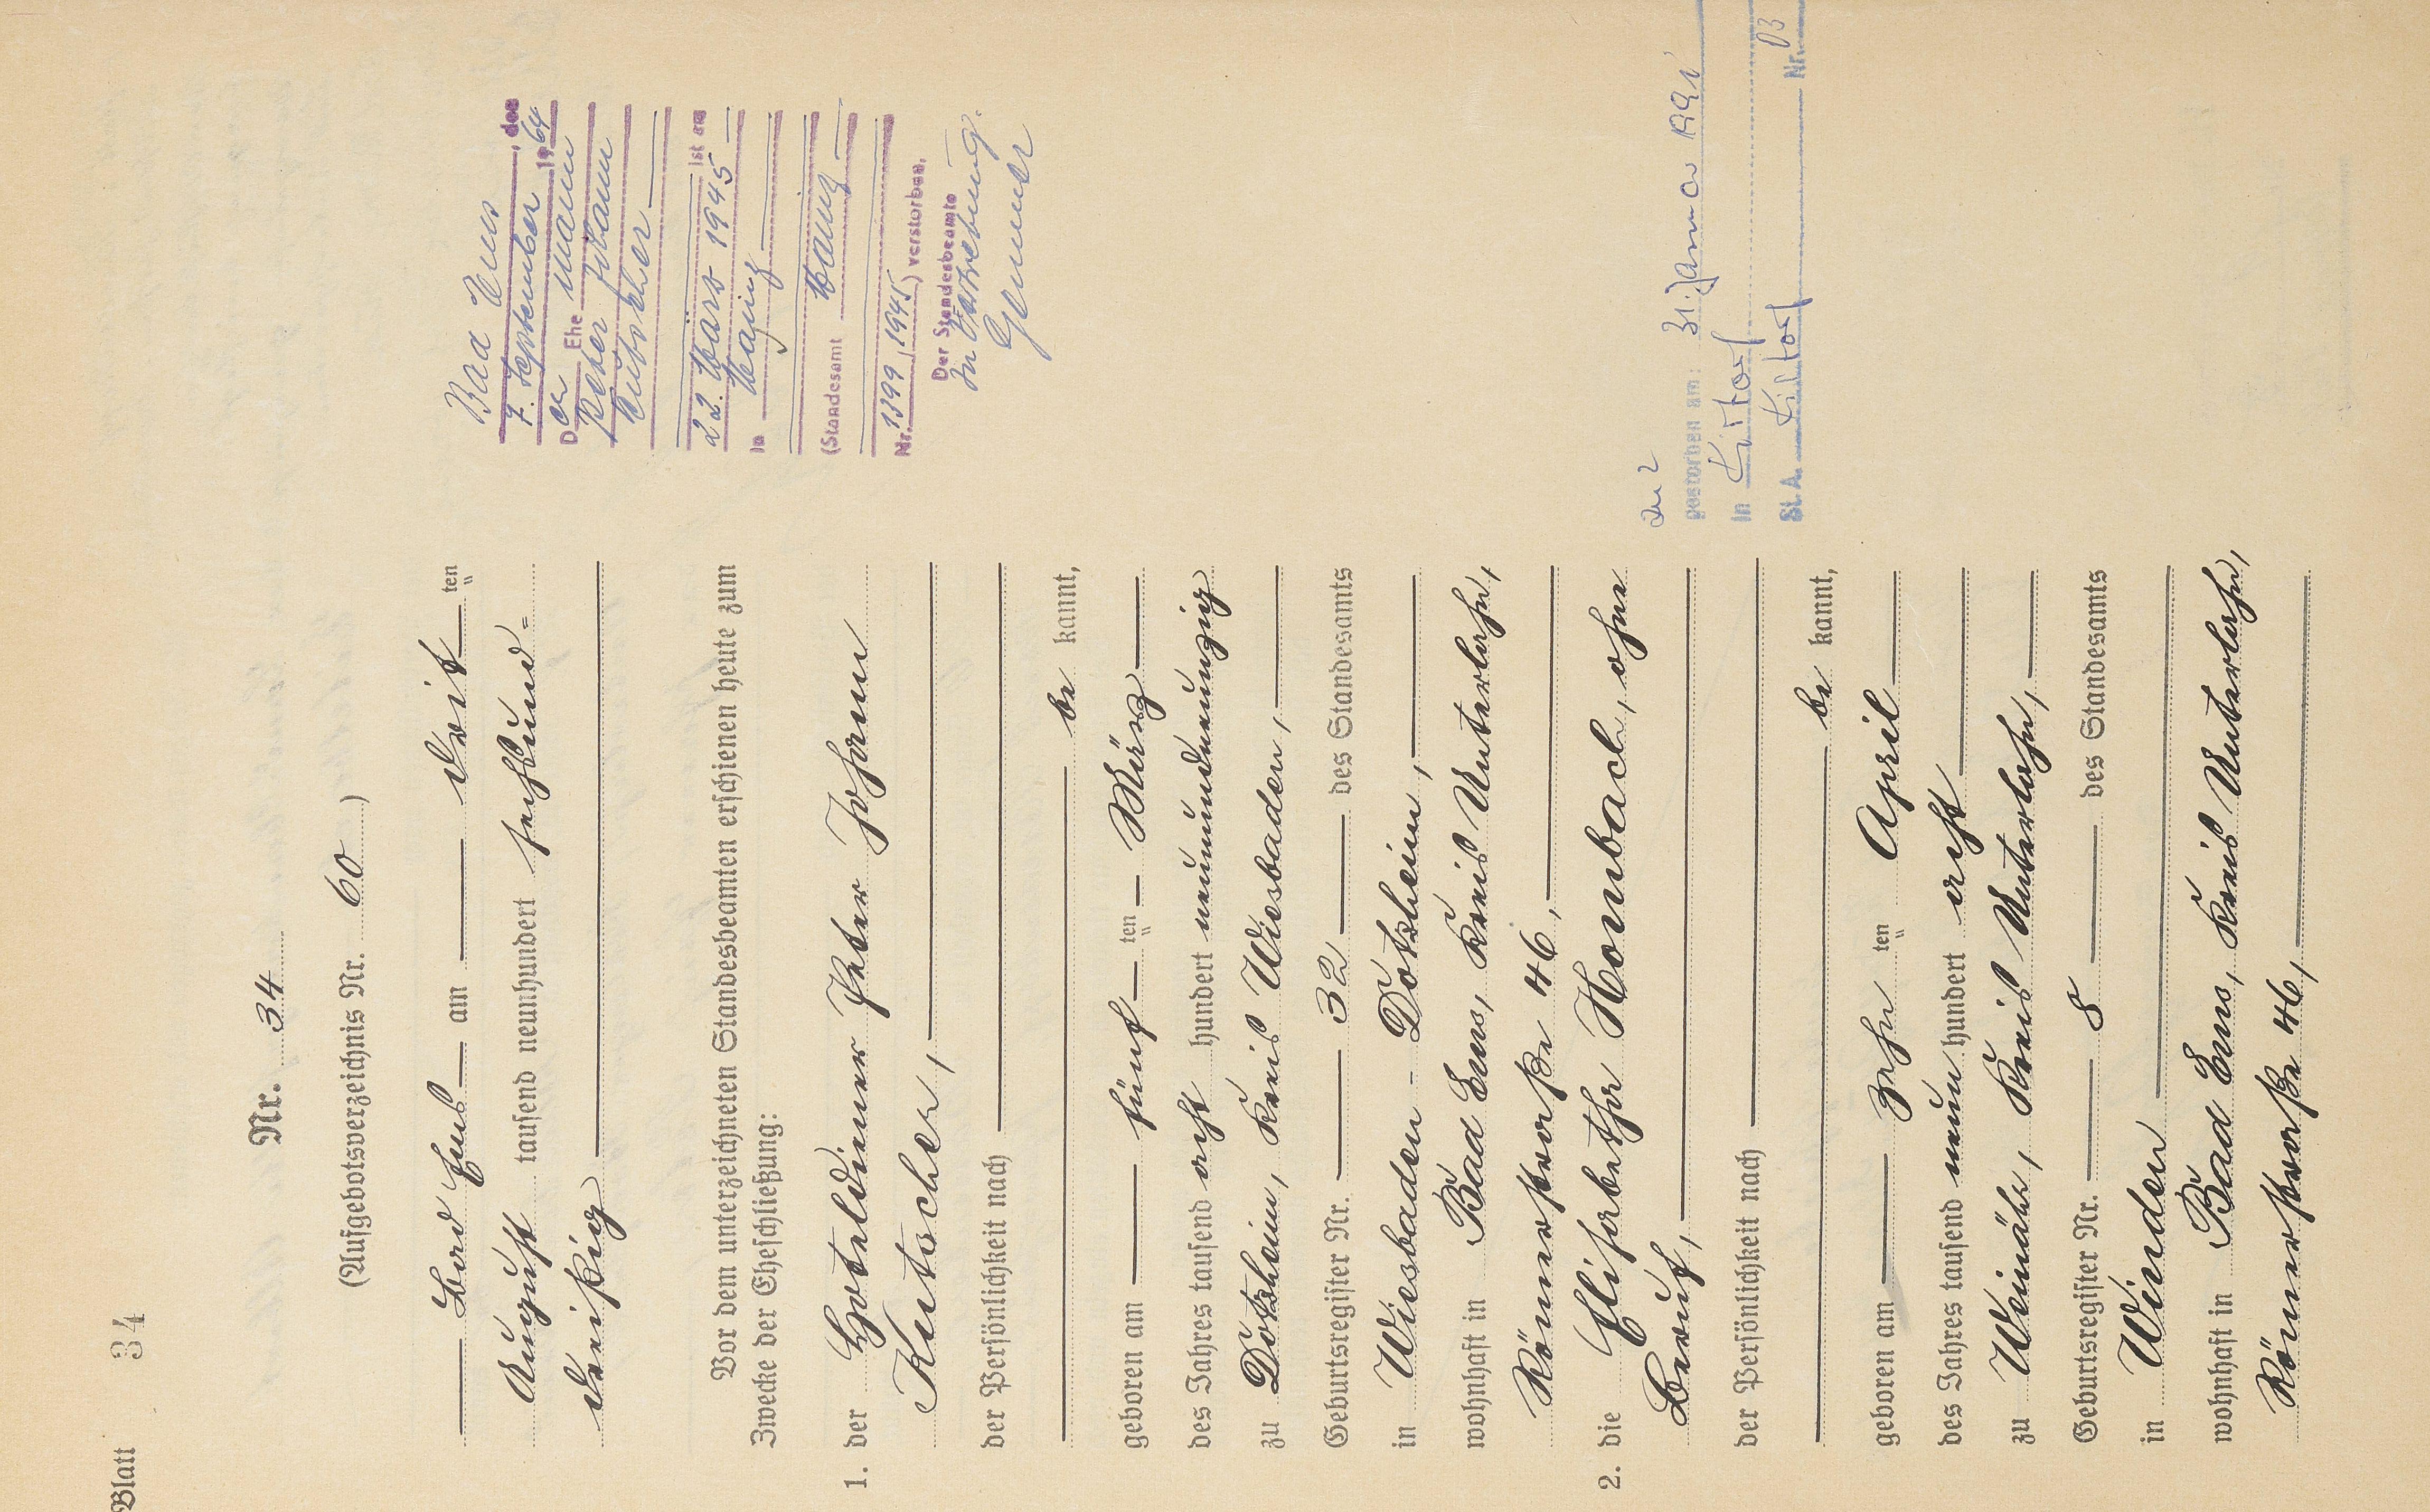 Blatt 34
Nr. 34
(Aufgebotsverzeichnis Nr. 60)
Bad Ems am drit ten
August tausend neunhundert sechsund=
dreißig
Vor dem unterzeichneten Standesbeamten erschienen heute zum
Zwecke der Eheschließung:
1. der Hoteldiener Peter Johann
Kutscher,
der Persönlichkeit nach
be kannt,
geboren am fünf ten März
des Jahres tausend acht hundert neunundneunzig
zu Dotzheim, Kreis Wiesbaden,
Geburtsregister Nr. 32 des Standesamts
in Wiesbaden-Dotzheim,
wohnhaft in Bad Ems, Kreis Unterlahn,
Römerstraße 46,
2. die Elisabetha Hombach, ohne
Beruf,
der Persönlichkeit nach
be kannt,
geboren am zehn ten April
des Jahres tausend neun hundert acht
zu Weinähr, Kreis Unterlahn,
Geburtsregister Nr. 8 des Standesamts
in Winden
wohnhaft in Bad Ems, Kreis Unterlahn,
Römerstraße 46,
Bad Ems, den
7. September 1964
Der Ehemann
Peter Johann
Kutscher
ist am
22. März 1945
in Mainz
(Standesamt Mainz
Nr. 1399/1945) verstorben.
Der Standesbeamte
In Vertretung.
Zu 2
gestorben am: 31. Januar 1991
in
St. A. Nr. 13